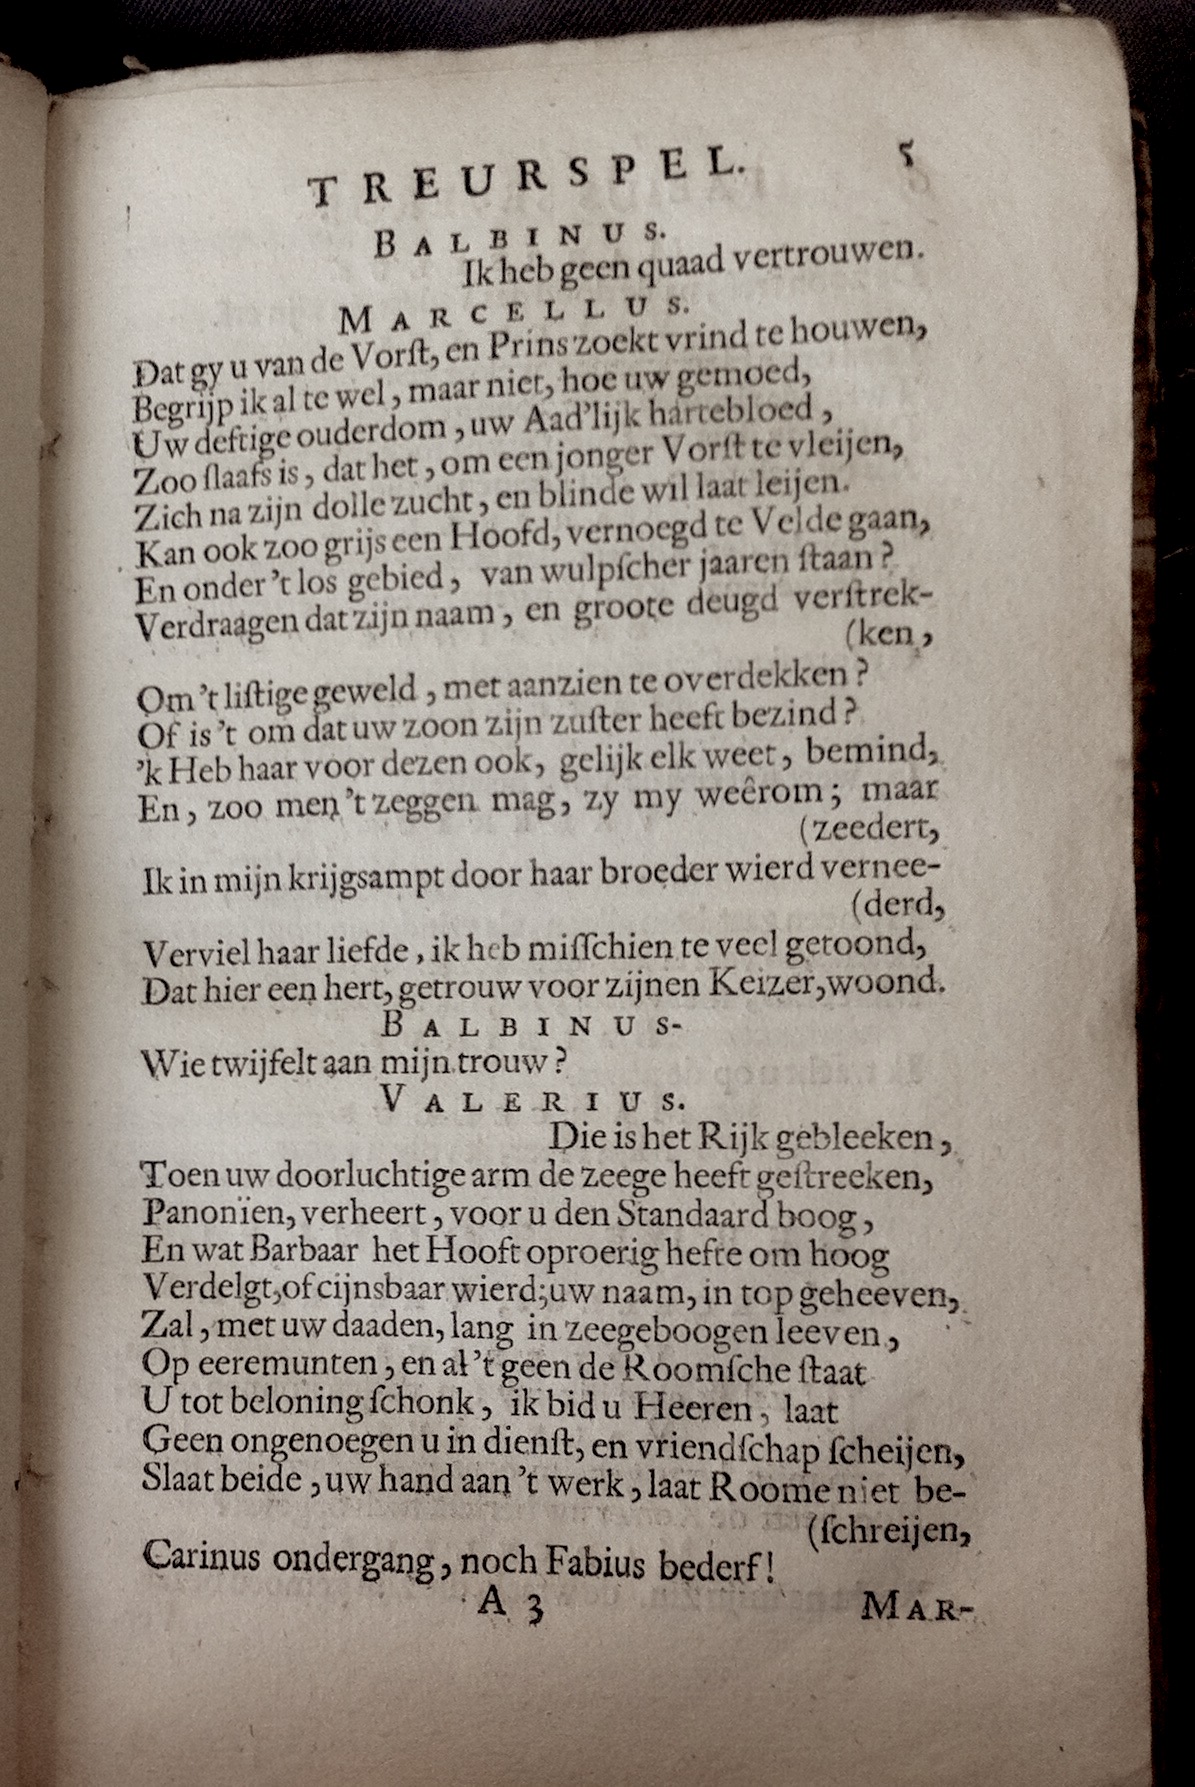 TREURSPEL. 5
BALBINUS.
Ik heb geen quaad vertrouwen.
MARCELLUS.
Dat gy u van de Vorſt, en Prins zoekt vrind te houwen,
Begrijp ik al te wel, maar niet, hoe uw gemoed,
Uw deftige ouderdom, uw Aad'lijk hartebloed,
Zoo ſlaafs is, dat het, om een jonger Vorſt te vleijen,
Zich na zijn dolle zucht, en blinde wil laat leijen.
Kan ook zoo grijs een Hoofd, vernoegd te Velde gaan,
En onder 't los gebied, van wulpſcher jaaren ſtaan?
Verdraagen dat zijn naam, en groote deugd verſtrek-
(ken,
Om 't liſtige geweld, met aanzien te overdekken?
Of is 't om dat uw zoon zijn zuſter heeft bezind?
'k Heb haar voor dezen ook, gelijk elk weet, bemind,
En, zoo men 't zeggen mag, zy my weêrom; maar
(zeedert,
Ik in mijn krijgsampt door haar broeder wierd vernee-
(derd,
Verviel haar liefde, ik heb miſſchien te veel getoond,
Dat hier een hert, getrouw voor zijnen Keizer, woond.
BALBINUS-
Wie twijfelt aan mijn trouw?
VALERIUS.
Die is het Rijk gebleeken,
Toen uw doorluchtige arm de zeege heeft geſtreeken,
Panonïen, verheert, voor u den Standaard boog,
En wat Barbaar het Hooft oproerig hefte om hoog
Verdelgt, of cijnsbaar wierd; uw naam, in top geheeven,
Zal, met uw daaden, lang in zeegeboogen leeven,
Op eeremunten, en al 't geen de Roomſche ſtaat
U tot beloning ſchonk, ik bid u Heeren, laat
Geen ongenoegen u in dienſt, en vriendſchap ſcheijen,
Slaat beide, uw hand aan 't werk, laat Roome niet be-
(ſchreijen,
Carinus ondergang, noch Fabius bederf!
A 3 MAR-